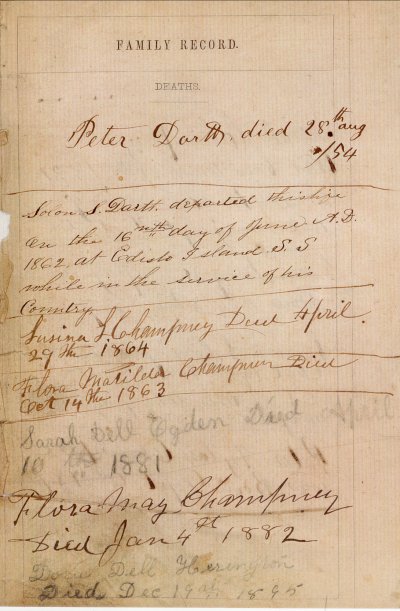 FAMILY RECORD.
DEATHS.
Peter Darth, died 28th aug
/54
Solon S. Darth departed this life
on the 16 nth day of June A.D.
1862, at Edisto Island S. S
while in the service of his
Country.
Lusina L. Champney Died April.
29 th 1864
Flora Matilda Champney Died
Oct 14 the 1863
Sarah Dell Ogden Died April
10 th 1881
Flora May Champney
Died Jan 4st 1882
Dell Herington
Died Dec 19th. 1895